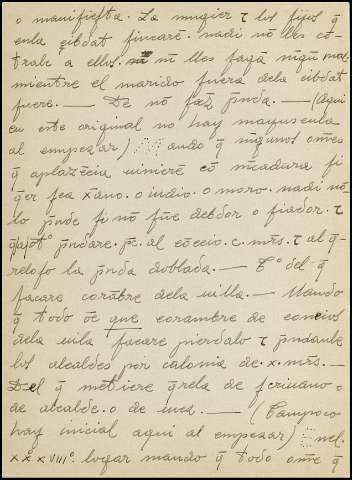 o manifiesta. La mugier ⁊ los fijos q̄
enla çibdat fincarē. nadi nō lles cō-
tralle a ellos. nī nō lles fagā nīgū mal
mientre el marido fuera dela cibdat
fuere. — De nō faz̄ p̄nda. — (Aqui
en este original no hay mayuscula
al empezar) ando q̄ nīgunos om̄es
q̄ aplazēcia uinierē cō m̄cadura si
q̄er sea xāno. o iudio. o moro. nadi nō
lo p̄nde si nō fūe debdor o fiador. ⁊
p̄ndare. pc̄. al cōceio. c. mr̄s. ⁊ al q̄-
reloso la p̄nda doblada. — Tº del q̄
sacare corābre dela uilla. — Mando
q̄ todo ōe que corambre de coneios
dela uila sacare pierdalo ⁊ p̄ndanle
los alcaldes por calonia de. x. mr̄s. —
Del q̄ metiere q̄rela de scriuano.
de alcalde. o de iuez. — (Tampoco
hay inicial aqui al empezar) nel.
xxº xviiiº. logar mando q̄ todo ome q̄